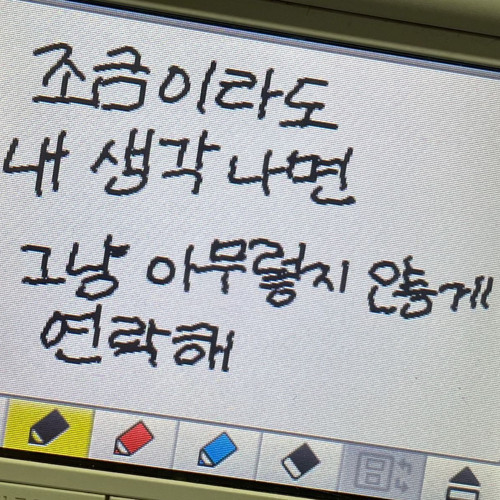 조금이라도
내 생각 나면
그냥 아무렇지 않게
연락해